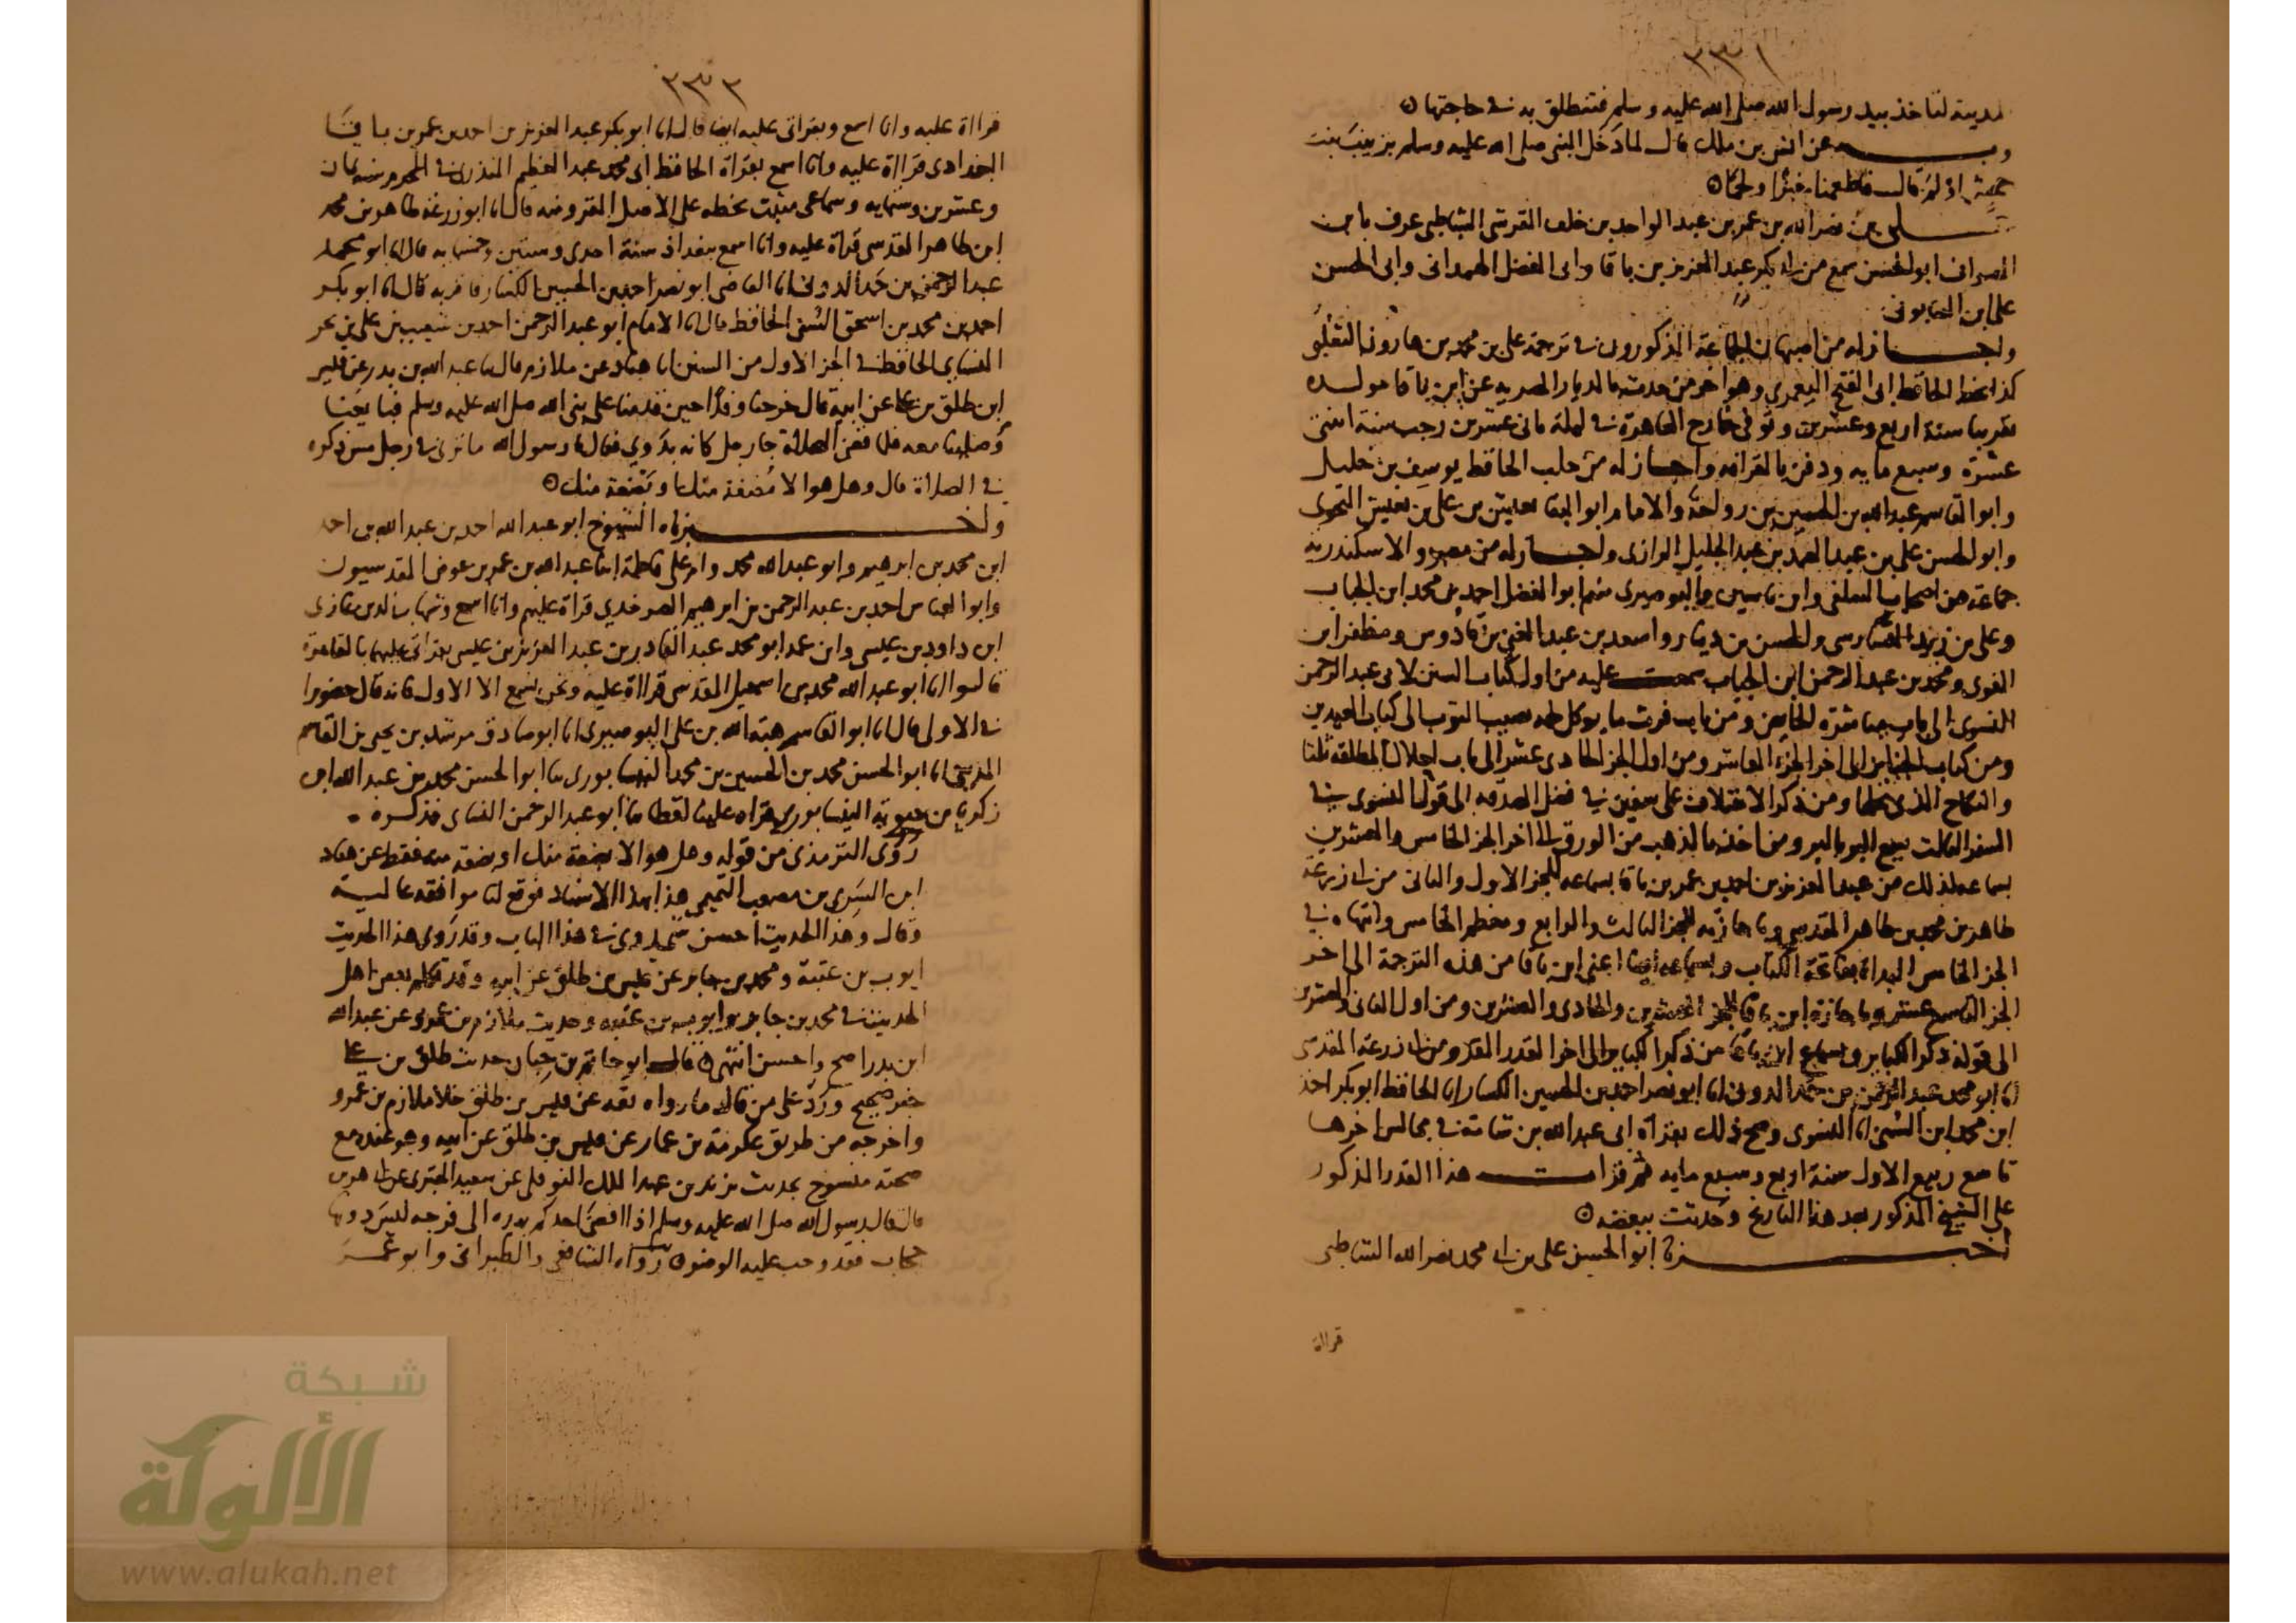 ٣٣١
لمدينة لتاخذ بيد رسول الله صلى الله عليه وسلم فتنطلق به في حاجتها
وبه عن انس بن ملك قال لما دخل النبي صلى الله عليه وسلم بزينب بنت
جحش اولم قال فاطعمنا خبزا ولحما
علي بن نصر الله بن عمر بن عبد الواحد بن خلف القرشي الشاطبي عرف بابن
الصواف ابو الحسن سمع من ابي بكر عبد العزيز بن باقا وابي الفضل الهمداني وابي الحسن
علي ابن الصابوني
واجاز له من اصبهان الجماعة المذكورون في ترجمة علي بن محمد بن هارون الثعلبي
كذا بخط الحافظ ابي الفتح اليعمري وهو اخر من حدث بالديار المصرية عن ابن باقا مولده
تقريبا سنة اربع وعشرين وتوفي خارج القاهرة في ليلة ثاني عشرين رجب سنة اثنتي
عشرة وسبع مايه ودفن بالقرافة واجاز له من حلب الحافظ يوسف بن خليل
وابو القاسم عبد الله بن الحسين بن رواحة والامام ابو البقا يعيش بن علي بن يعيش النحوي
وابو الحسن علي بن عبد الصمد بن عبد الجليل الرازي واجاز له من مصر والاسكندرية
جماعة من اصحاب السلفي وابن ياسين والبوصيري منهم ابو الفضل احمد بن محمد ابن الجباب
وعلي بن زيد الفارسي والحسن بن دينار واسعد بن عبد الغني بن قادوس ومظفر ابن
الفوي ومحمد بن عبد الرحمن ابن الجباب سمعت عليه من اول كتاب السنن لابي عبد الرحمن
النسوي الى باب مباشرة الحائض ومن باب فرث ما يوكل لحمه يصيب الثوب الى كتاب العيدين
ومن كتاب الجنايز الى اخر الجزء العاشر ومن اول الجز الحادي عشر الى باب احلال المطلقة ثلثا
والنكاح الذي يحلها ومن ذكر الاختلاف على سفين في فضل الصدقه الى قول النسوي في
السفر الثالث بيع البر بالبر ومن اخذ بالذهب من الورق الى اخر الجز الخامس والعشرين
بسماعه لذلك من عبد العزيز بن احمد بن عمر بن باقا بسماعه للجز الاول والثاني من ابي زرعة
طاهر بن محمد بن طاهر المقدسي وباجازته للجز الثالث والرابع ومعظم الخامس وانتهاه في
الجز الخامس البداة بفاتحة الكتاب وبسماعه ايضا اعني ابن باقا من هذه الترجمة الى اخر
الجز التاسع عشر وباجازة ابن باقا للجز العشرين والحادي والعشرين ومن اول الثاني والعشرين
الى قوله ذكر الكباير وبسماع ابن باقا من ذكر الكباير الى اخر القدر المقرو من ابي زرعة المقدسي
انا ابو محمد عبد الرحمن بن حمد الدوني انا ابو نصر احمد بن الحسين الكسار انا الحافظ ابو بكر احمد
ابن محمد ابن السني انا النسوي وصح ذلك بقراة ابي عبد الله بن شامة في مجالس اخرها
تاسع ربيع الاول سنة اربع وسبع مايه ثم قرات هذا القدر المذكور
على الشيخ المذكور بعد هذا التاريخ وحدثت ببعضه
اخبرنا ابو الحسن علي بن ابي محمد نصر الله الشاطبي
قراة
٣٣٢
قراة عليه وانا اسمع وبقراتي عليه ايضا قال انا ابو بكر عبد العزيز بن احمد بن عمر بن باقا
البغدادي قراة عليه وانا اسمع بقراة الحافظ ابي محمد عبد العظيم المنذري في المحرم سنه ثمان
وعشرين وستمايه وسماعي مثبت بخطه على الاصل المقرو منه قال انا ابو زرعة طاهر بن محمد
ابن طاهر المقدسي قراة عليه وانا اسمع ببغداد سنة احدى وستين وخمسمايه قال انا ابو محمد
عبد الرحمن بن حمد الدوني انا القاضي ابو نصر احمد بن الحسين الكسار قال انا ابو بكر
احمد بن محمد بن اسحق السني الحافظ قال انا الامام ابو عبد الرحمن احمد بن شعيب بن علي بن بحر
النسايي الحافظ في الجز الاول من السنن انا هناد عن ملازم قال ثنا عبد الله بن بدر عن قيس
ابن طلق بن علي عن ابيه قال خرجنا وفدا حين قدمنا على نبي الله صلى الله عليه وسلم فبايعنا
وصلينا معه فلما قضى الصلاة جا رجل كانه بدوي فقال يا رسول الله ما ترى في رجل مس ذكره
في الصلاة قال وهل هو الا مضغة منك او بضعة منك
واخبرناه الشيوخ ابو عبد الله احمد بن عبد الله بن احمد
ابن محمد بن ابرهيم وابو عبد الله محمد وام علي فاطمة ابنا عبد الله بن عمر بن عوض المقدسيون
وابو العباس احمد بن عبد الرحمن بن ابرهيم الصرخدي قراة عليهم وانا اسمع وشهاب الدين غازي
ابن داود بن عيسى وابن عمه ابو محمد عبد القادر بن عبد العزيز بن عيسى بقراتي عليهما بالقاهرة
قالوا انا ابو عبد الله محمد بن اسمعيل المقدسي قراة عليه ونحن نسمع الا الاول فانه قال حضورا
في الاولى قال انا ابو القاسم هبة الله بن علي البوصيري انا ابو صادق مرشد بن يحيى بن القاسم
المديني انا ابو الحسن محمد بن الحسين بن محمد النيسابوري ثنا ابو الحسن محمد بن عبد الله ابن
زكريا بن حيويه النيسابوري قراه علينا لفظا ثنا ابو عبد الرحمن النسائي فذكره
روى الترمذي من قوله وهل هو الا مضغة منك او بضعة منه فقط عن هناد
ابن السري بن مصعب التميمي هذا بهذا الاسناد فوقع لنا موافقة عالية
وقال وهذا الحديث احسن شي روي في هذا الباب وقد روى هذا الحديث
ايوب بن عتبة ومحمد بن جابر عن قيس بن طلق عن ابيه وقد تكلم بعض اهل
الحديث في محمد بن جابر وايوب بن عتبه وحديث ملازم بن عمرو عن عبد الله
ابن بدر اصح واحسن انتهى قال ابو حاتم بن حبان حديث طلق بن علي
خبر صحيح ورد على من قال ما رواه ثقه عن قيس بن طلق خلا ملازم بن عمرو
واخرجه من طريق عكرمة بن عمار عن قيس بن طلق عن ابيه وهو عنده مع
صحته منسوخ بحديث يزيد بن عبد الملك النوفلي عن سعيد المقبري عن ابي هريره
قال قال رسول الله صلى الله عليه وسلم اذا افضى احدكم بيده الى فرجه ليس دونها
حجاب فقد وجب عليه الوضو رواه الشافعي والطبراني وابو عمر
شبكة
الألوكة
www.alukah.net